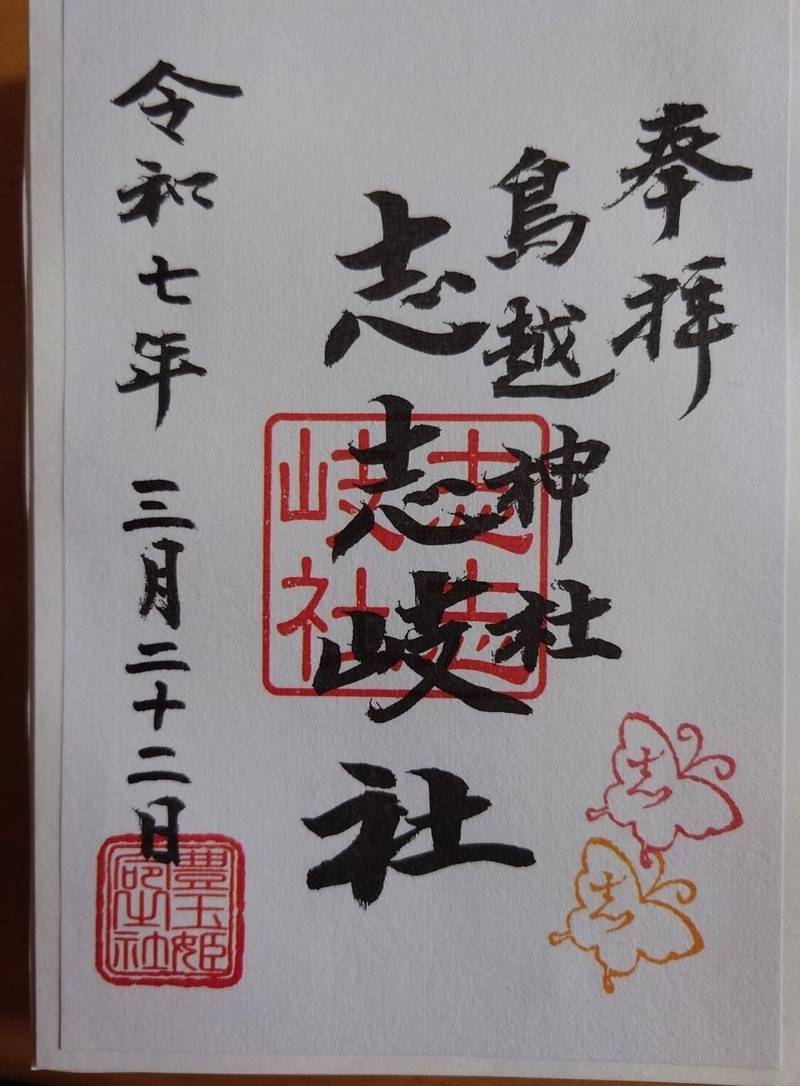 奉拝
鳥越神社
志志岐社
志志
岐社
令和七年 三月二十二日
豊玉姫
志
志